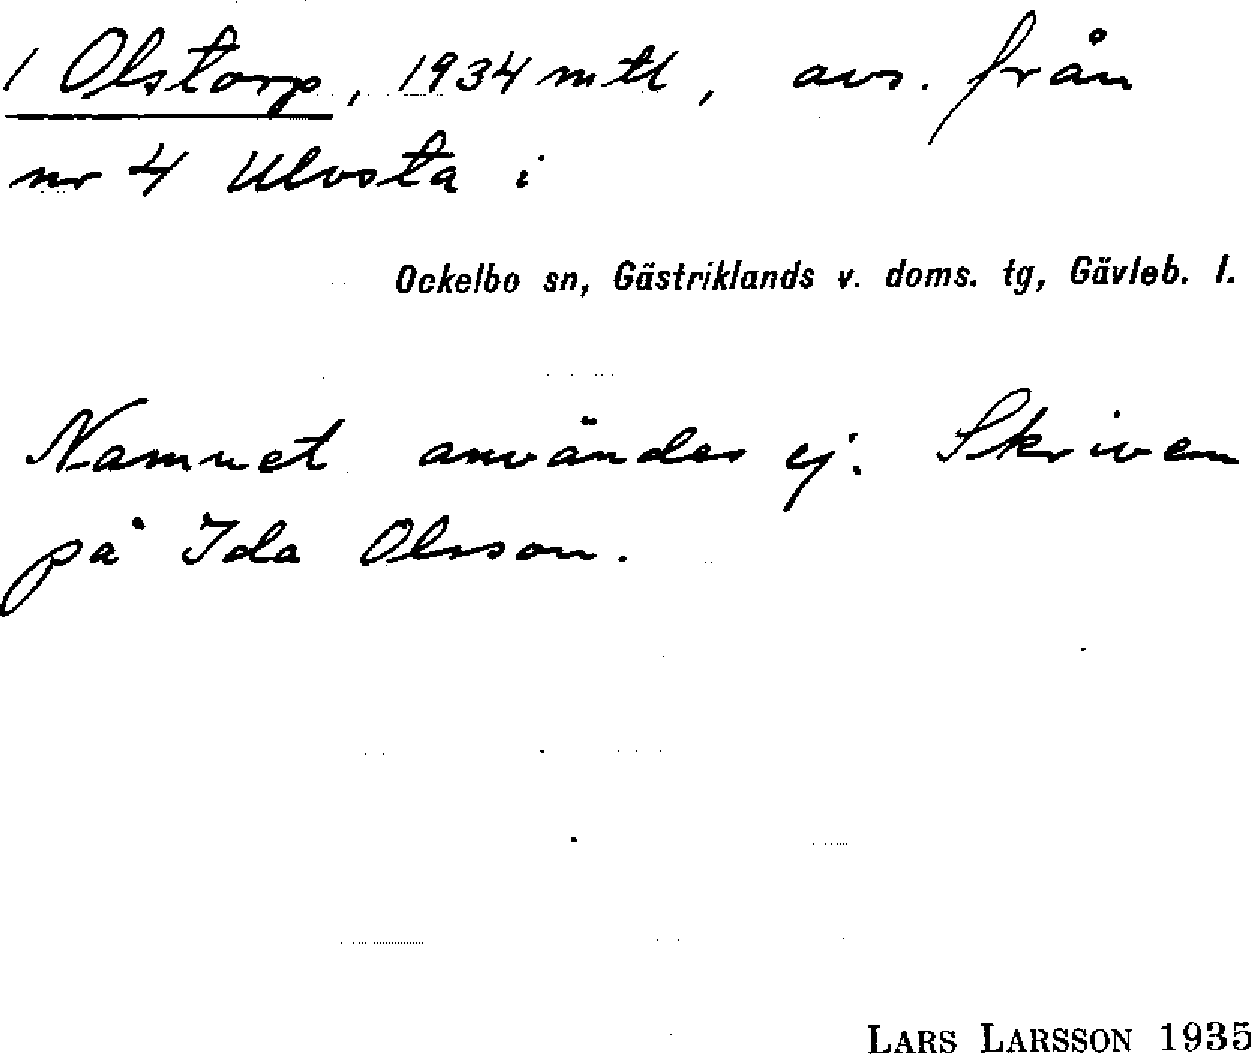 1 Olstorp, 1934 mtl, avs. från
nr 4 Ulvsta i
Ockelbo sn, Gästriklands v. doms. tg, Gävleb. l.
Namnet användes ej. Skriven
på Ida Olsson.
LARS LARSSON 1935